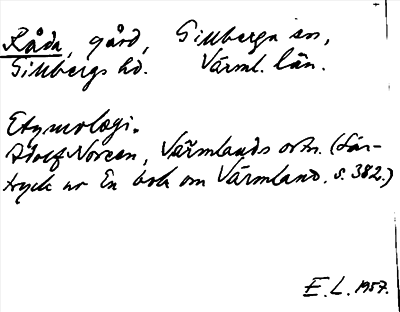 Råda, gård, Gillberga sn,
Gillbergs hd. Värml. län.
Etymologi.
Adolf Noreen, Värmlands ortn. (Sär-
tryck ur En bok om Värmland. s. 382.)
E. L. 1957.